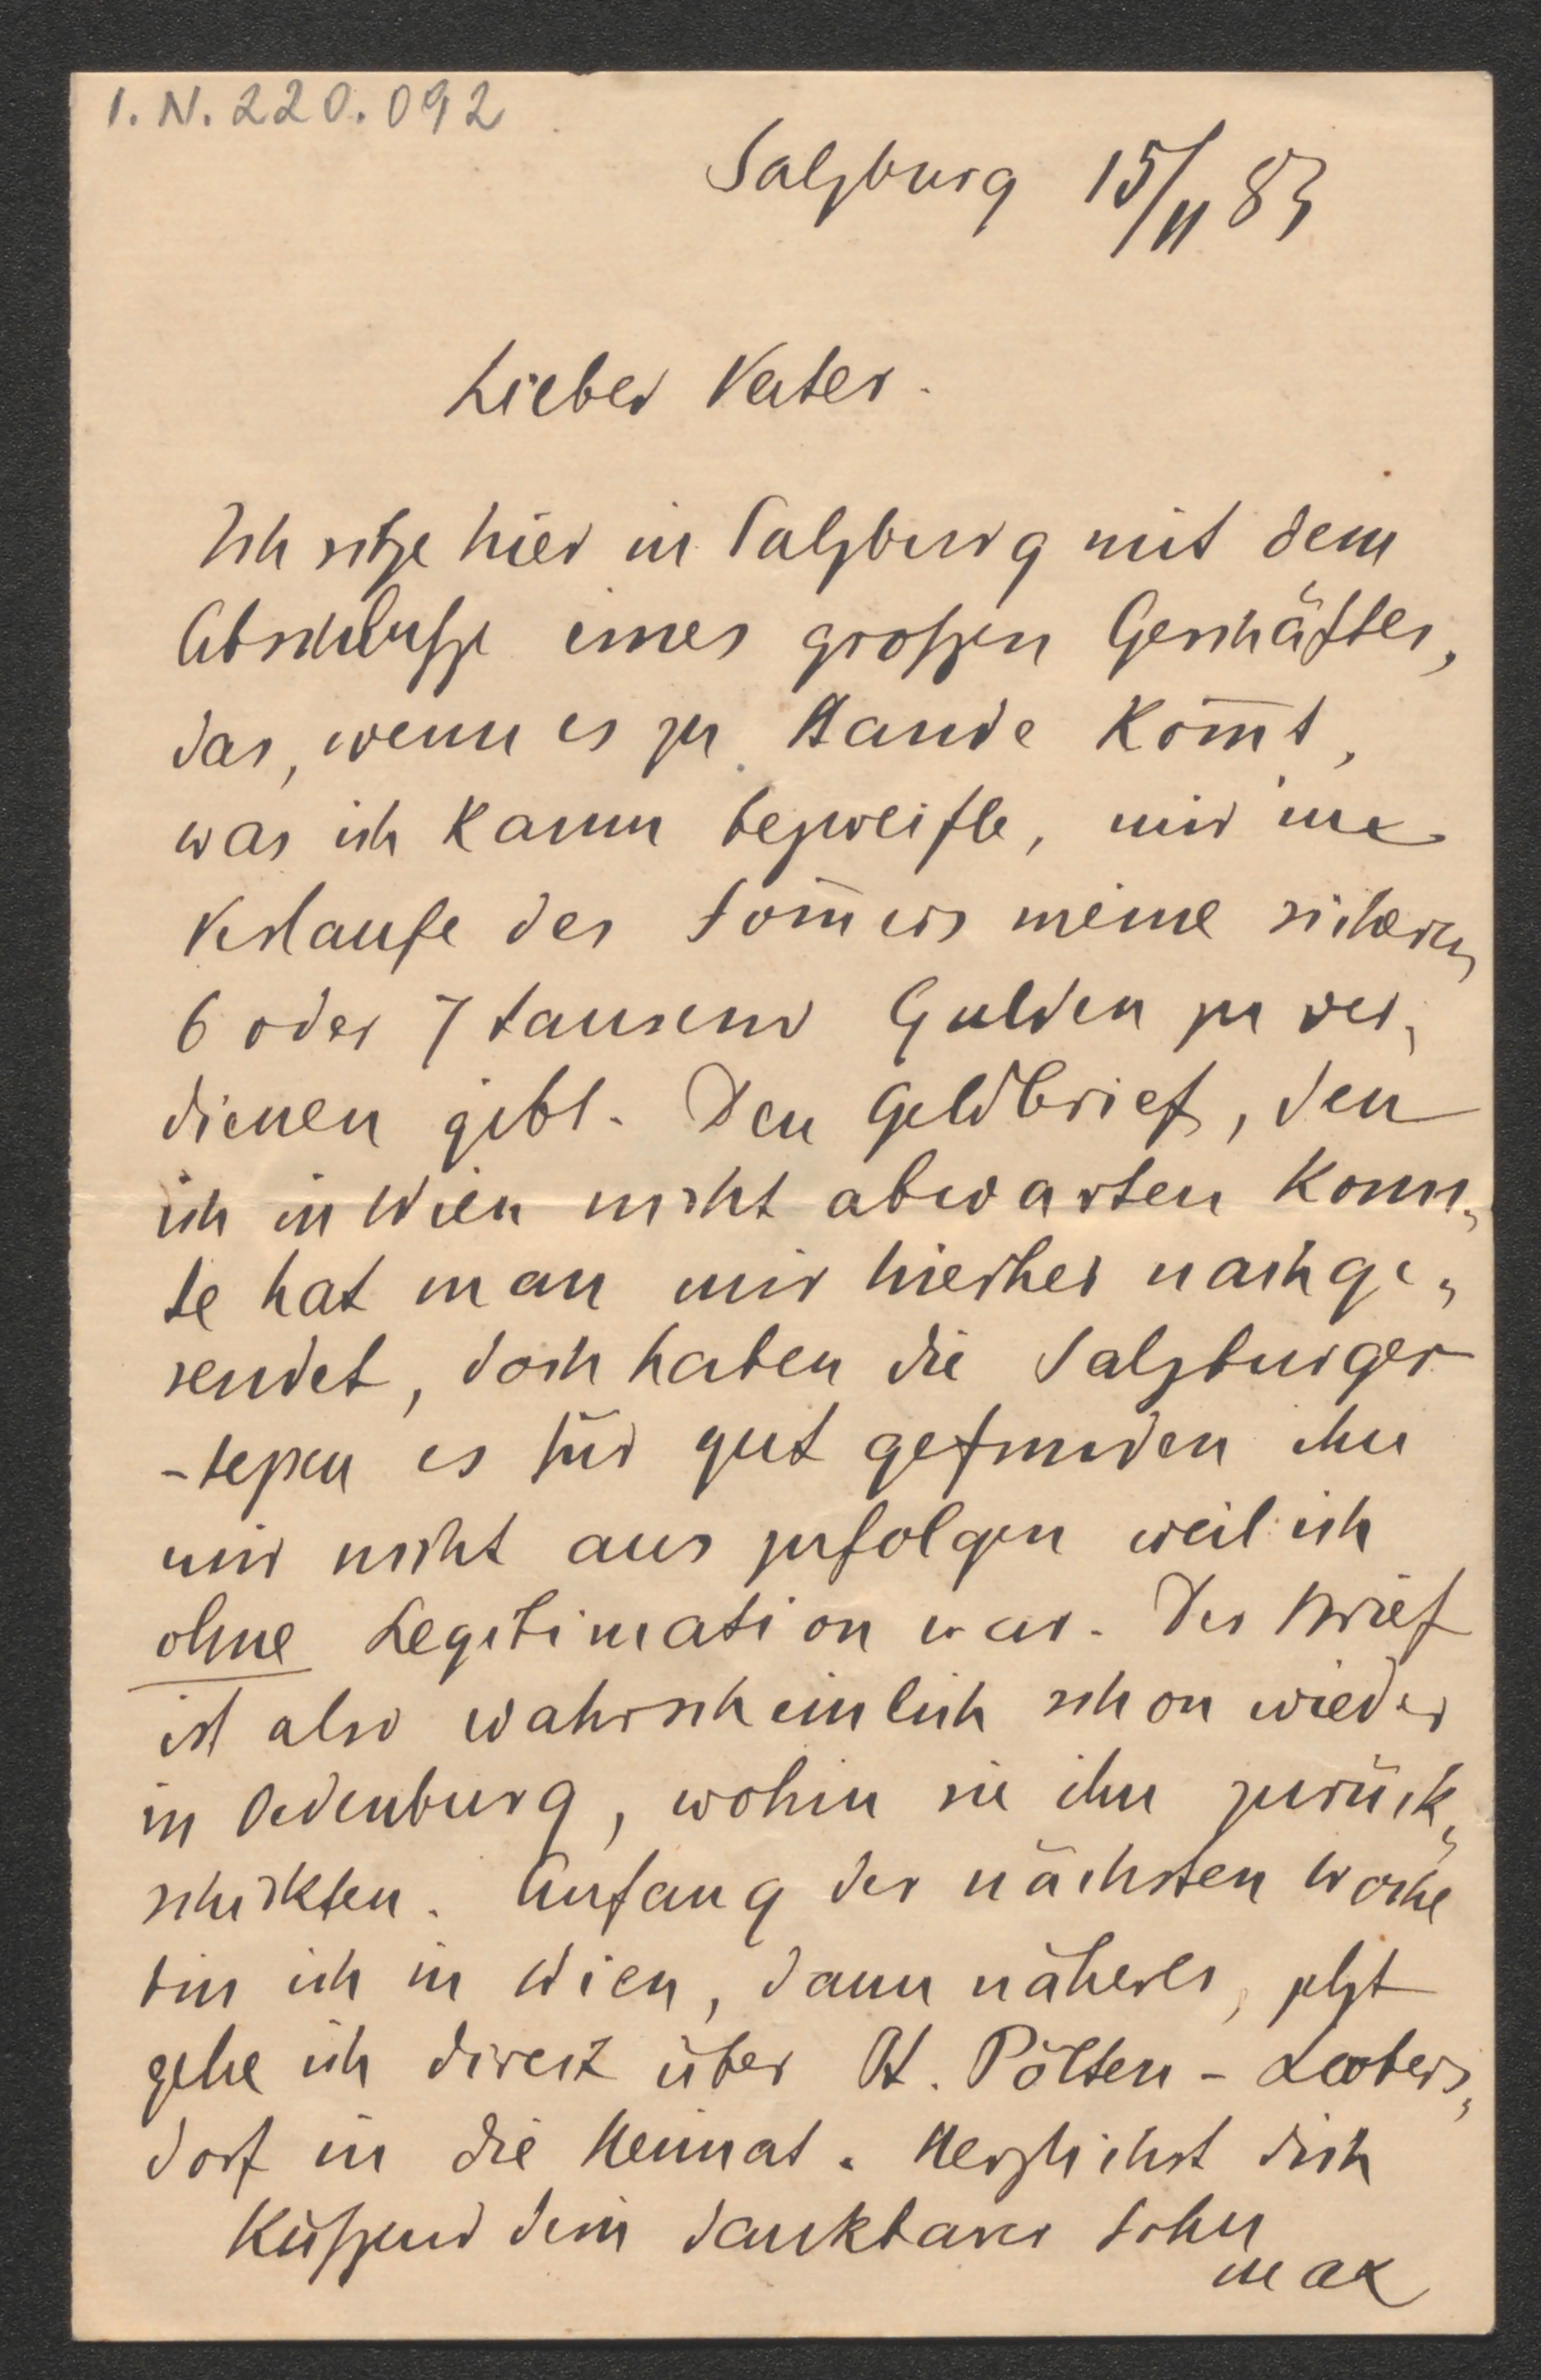 I.N. 220.092
Salzburg 15/II 83
Lieber Vater.
Ich sitze hier in Salzburg mit dem
Abschluße eines großen Geschäftes,
das, wenn es zu Stande kom̄t,
was ich kaum bezweifle, mir im
Verlaufe des Som̄ers meine sicheren
6 oder 7 tausend Gulden zu ver„
dienen gibt. Den Geldbrief, den
ich in Wien nicht abwarten konn„
te hat man mir hierher nachge„
sendet, doch haben die Salzburger
es für gut gefunden ihn
mir nicht aus zufolgen weil ich
ohne Legitimation war. Der Brief
ist also wahrscheinlich schon wieder
in Oedenburg, wohin sie ihn zurück„
schickten. Anfang der nächsten Woche
bin ich in Wien, dann näheres, jetzt
gehe ich direct über St. Pölten - Leobers„
dorf in die Heimat. Herzlichst dich
küßend dein dankbarer Sohn
Max